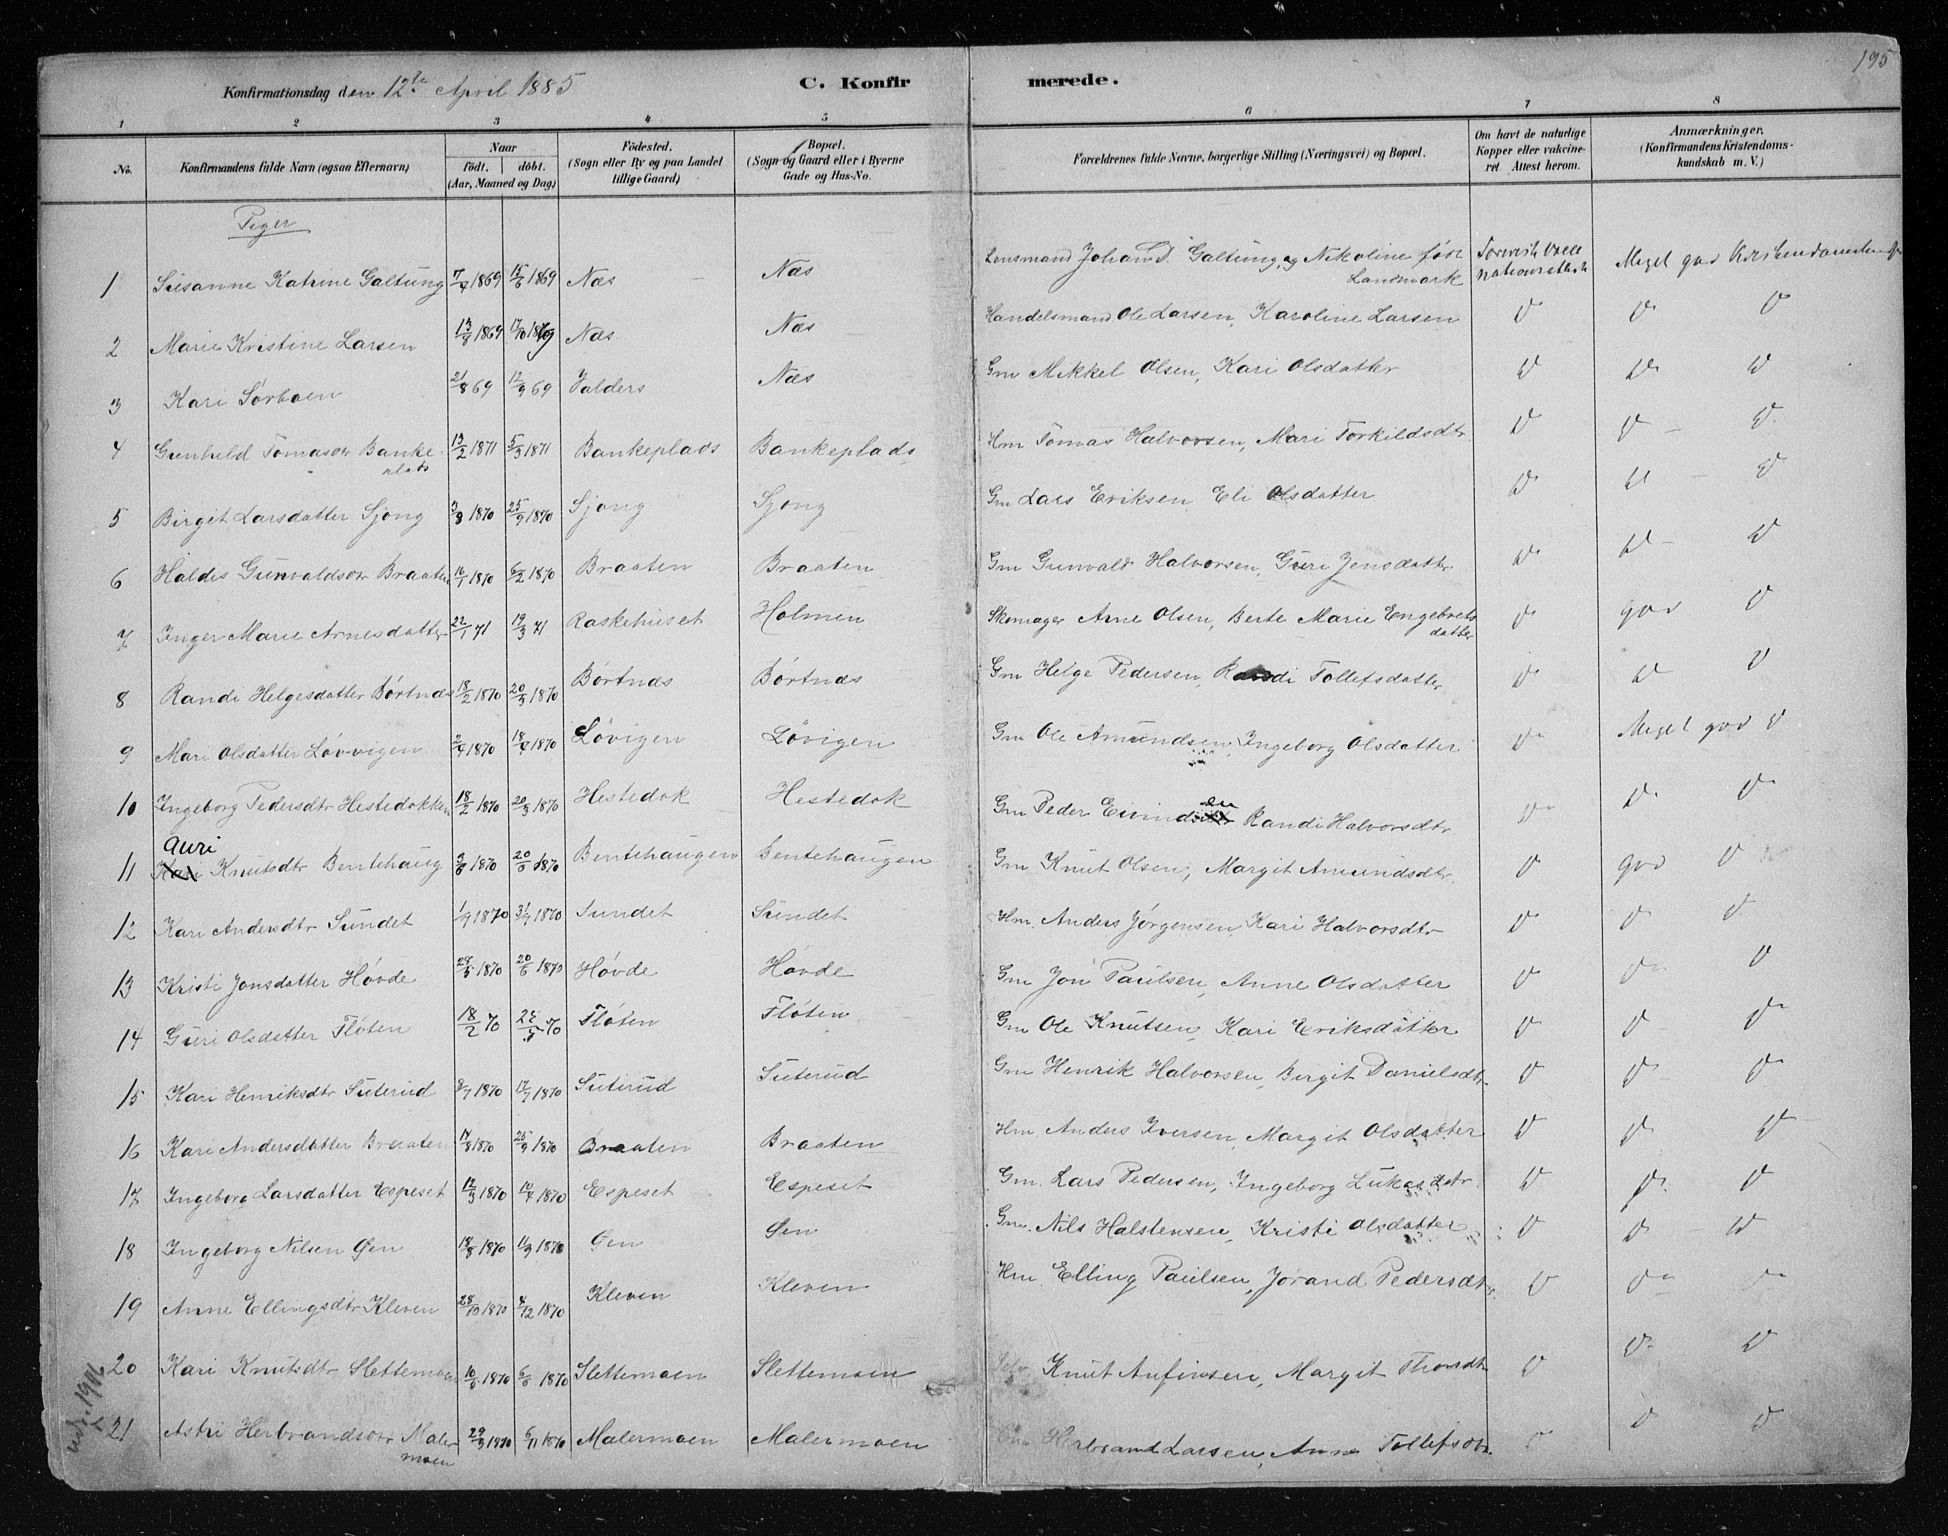 195
Konfirmationsdag den 12te April 1885 C. Konfirmerede.
1 2 3 4 5 6 7 8
No. Konfirmandens fulde Navn (ogsaa Efternavn) Naar født. døbt. (Aar, Maaned og Dag) Fødested. (Sogn eller By og paa Landet tillige Gaard) Bopæl. (Sogn og Gaard eller i Byerne Gade og Hus-No. Forældrenes fulde Navne, borgerlige Stilling (Næringsvei) og Bopæl. Om havt de naturlige Kopper eller vakcineret Attest herom. Anmærkninger. (Konfirmandens Kristendomskundskab m. V.)
Piger
1 Susanne Katrine Galtung 7/4 1869 15/6 1869 Næs Næs Lensmand Johan D. Galtung og Nikoline født Landmark Meget god
2 Marie Kristine Larsen 13/8 1869 17/10 1869 Næs Næs Handelsmand Ole Larsen, Karoline Larsen
3 Kari Sørboen 21/8 69 12/9 69 Valders Næs Gm Mikkel Olsen, Kari Olsdatter
4 Gunhild Tomasdr Bankeplads 13/2 1871 5/3 1871 Bankeplads Bankeplads Hm Tomas Halvorsen, Mari Torkildsdtr
5 Birgit Larsdatter Sjong 3/8 1870 25/9 1870 Sjong Sjong Gm Lars Eriksen, Eli Olsdatter
6 Haldis Gunvaldsdr Braaten 16/1 1870 6/2 1870 Braaten Braaten Gm Gunvald Halvorsen, Guri Jensdatter
7 Inger Marie Arnesdatter 22/1 71 19/3 71 Raskehuset Holmen Skomager Arne Olsen, Berte Marie Engebretsdatter god
8 Randi Helgesdatter Børtnæs 18/2 1870 20/3 1870 Børtnæs Børtnæs Gm Helge Pedersen, Randi Tollefsdatter
9 Mari Olsdatter Løvvigen 2/4 1870 18/4 1870 Løvigen Løvigen Gm Ole Amundsen, Ingeborg Olsdatter Meget god
10 Ingeborg Pedersdtr Hestedokken 18/2 1870 20/3 1870 Hestedok Hestedok Gm Peder Eivindsen Randi Halvorsdtr
11 Auri Kari Knutsdtr Bentehaug 3/6 1870 20/6 1870 Bentehaugen Bentehaugen Gm Knut Olsen, Margit Amundsdtr. god
12 Kari Andersdtr Sundet 1/9 1870 1870 Sundet Sundet Hm. Anders Jørgensen, Kari Halvorsdtr
13 Kristi Jonsdatter Høvde 29/5 1870 20/6 1870 Høvde Høvde Gm Jon Paulsen, Anne Olsdatter
14 Guri Olsdatter Fløten 18/2 70 70 Fløten Fløten Gm Ole Knutsen, Kari Eriksdatter
15 Kari Henriksdtr Suterud 1870 17/7 1870 Suterud Suterud Gm Henrik Halvorsen, Birgit Danielsdtr
16 Kari Andersdatter Braaten 1870 25/9 1870 Braaten Braaten Hm. Anders Iversen, Margit Olsdatter
17 Ingeborg Larsdatter Espeset 12/3 1870 10/4 1870 Espeset Espeset Gm. Lars Pedersen, Ingeborg Lukasdtr.
18 Ingeborg Nilsen Øen 18/8 1870 11/9 1870 Øen Øen Gm. Nils Halstensen, Kristi Olsdatter
19 Anne Ellingsdtr Kleven 28/10 1870 4/12 1870 Kleven Kleven Hm. Elling Paulsen, Jørand Pedersdtr.
20 Kari Knutsdtr Slettemoen 1870 6/6 1870 Slettemoen Slettemoen Knut Anfinsen, Margit Thorsdtr
21 Astri Herbrandsdr Malermoen 29/9 1870 6/11 1870 Malermoen Malermoen Herbrand Larsen, Anne Tollefsdtr.